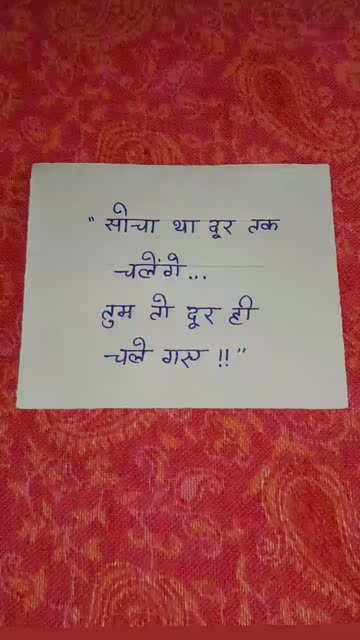 " सोचा था दूर तक
चलेंगे...
तुम तो दूर ही
चले गए !! "